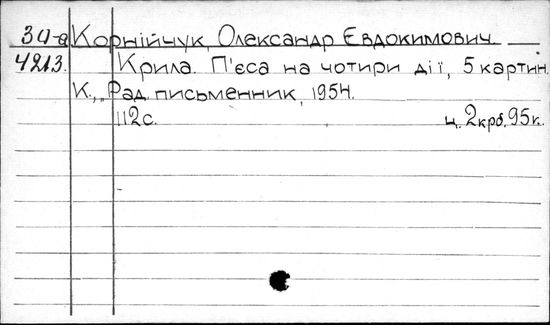 34-а Корнійчук, Олександр Євдокимович
4213. Крила. П'єса на чотири дії, 5 картин.
К., „Рад. письменник, 1954.
112с. ц. 2крб. 95к.